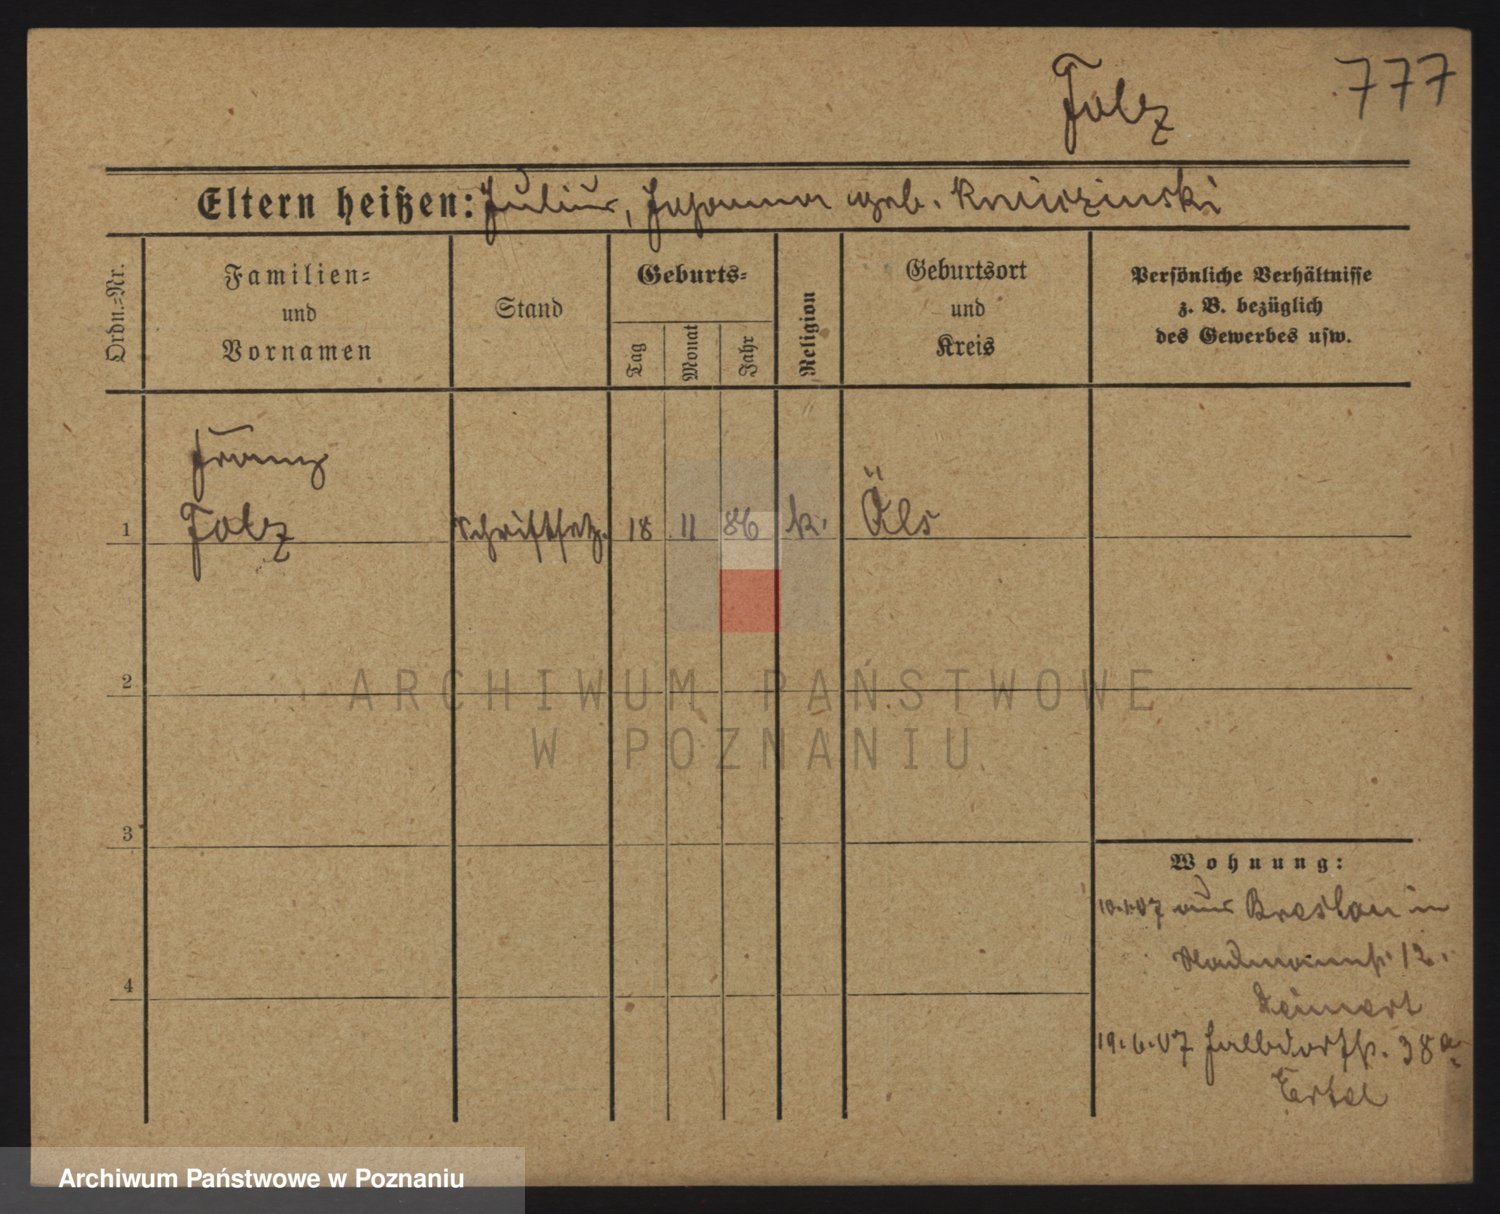 Folz
777
Eltern heißen: Julius, Johanna geb. Kniczinski
Ordn.-Nr.
Familien-
und
Vornamen
Stand
Geburts-
Tag
Monat
Jahr
Religion
Geburtsort
und
Kreis
Persönliche Verhältnisse
z. B. bezüglich
des Gewerbes usw.
Franz
1 Folz Schriftsetz. 18 11 86 k. Äls
2
ARCHIWUM PAŃSTWOWE
W POZNANIU
3
Wohnung:
10.1.07 aus Breslau in
12.
4
19.6.07 38a
Ertel
Archiwum Państwowe w Poznaniu